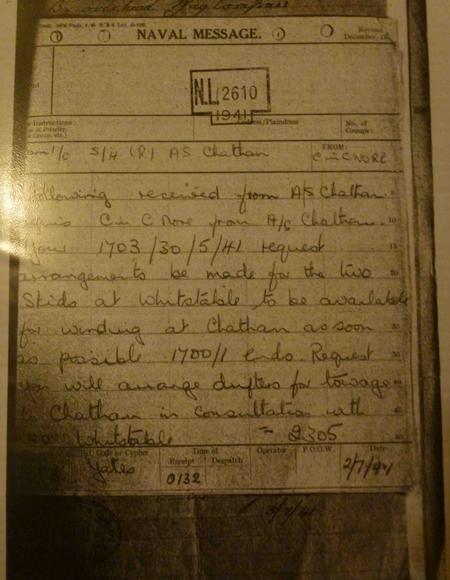 NAVAL MESSAGE.
Revised
December,
N.L/2610
1941
Instructions:
of Priority,
Group, etc.)
/Plaindress
No. of
Groups:
FROM:
I/C S/H (R) A/S Chatham
C in C NORE
Following received from A/S Chatham
5
C in C Nore from A/S Chatham.
10
Your 1703/30/5/41 request
15
arrangements to be made for the two
20
Skids at Whitstable to be available
for winding at Chatham as soon
30
as possible 1700/1 ends. Request
you will arrange drifters for towage
to Chatham in consultation with
Whitstable = 2305
Code or Cypher
Time of
Receipt Despatch
Operator
P.O.O.W.
Date
Yates
0132
2/7/41
3/7/41